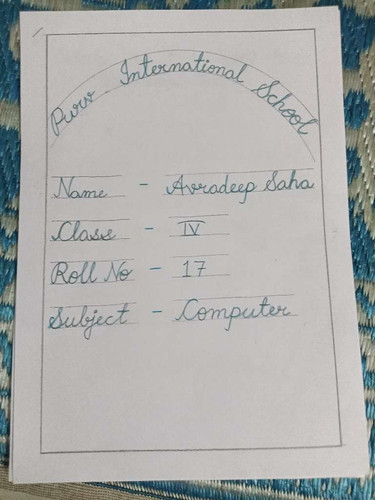 Purv International School
Name - Avradeep Saha
Class - IV
Roll No - 17
Subject - Computer